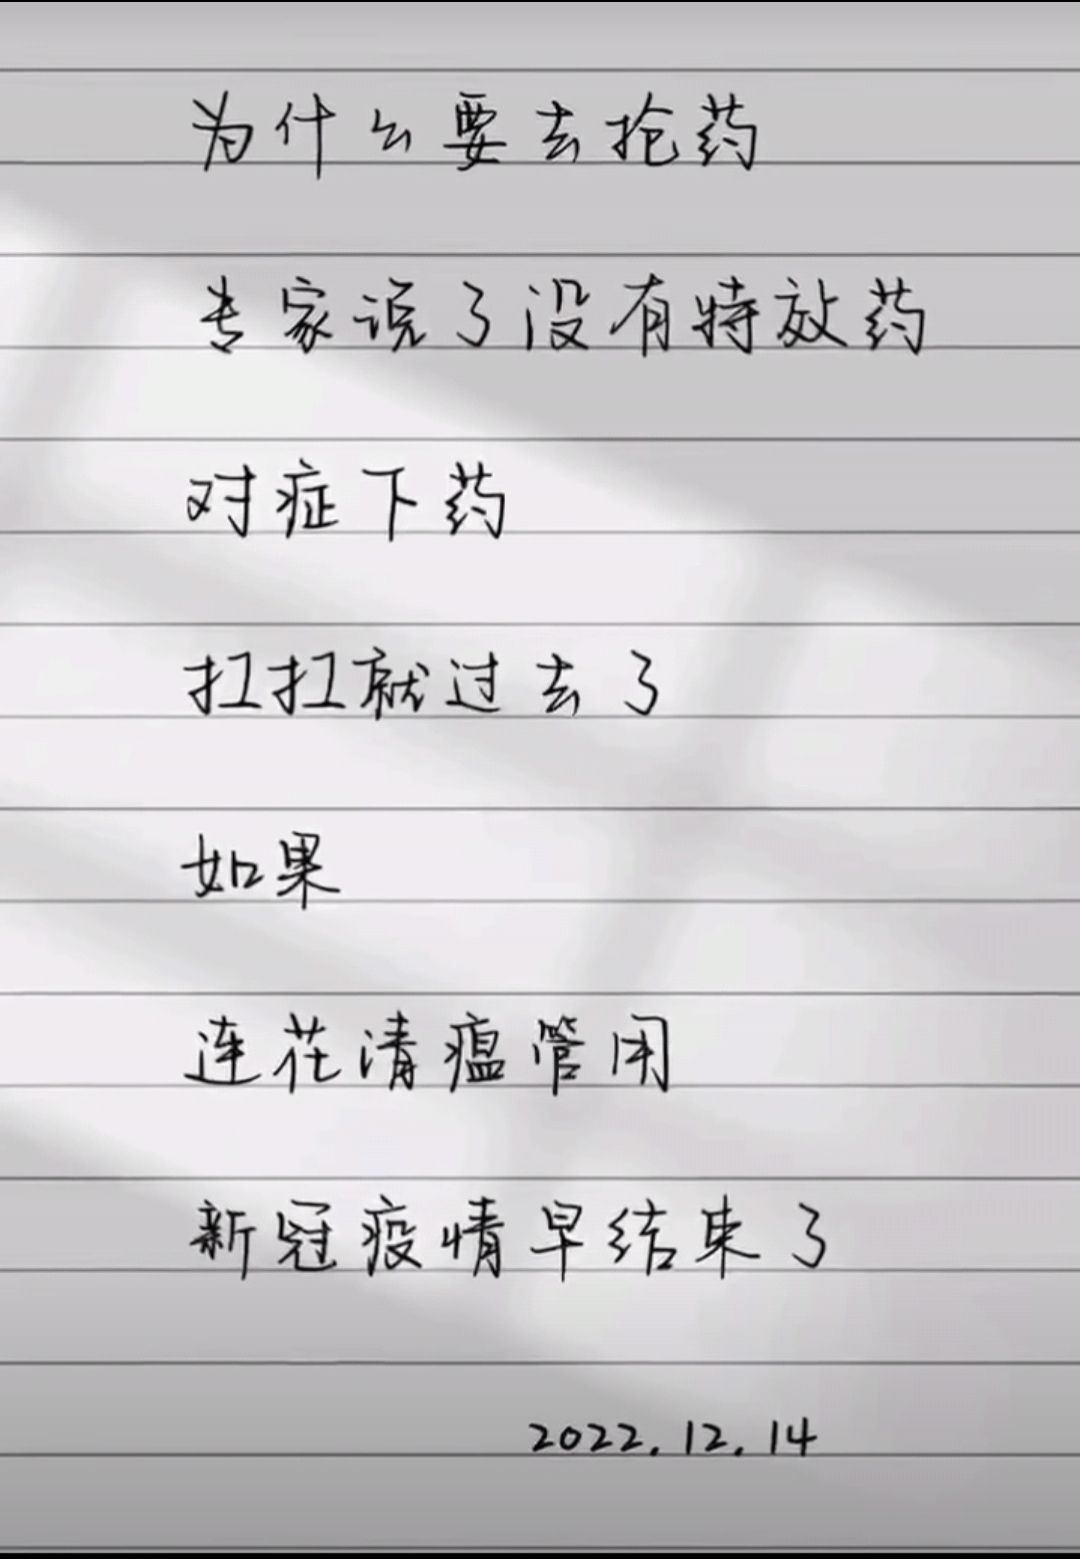 为什么要去抢药
专家说了没有特放药
对症下药
扛扛就过去了
如果
连花清瘟管用
新冠疫情早结束了
2022.12.14